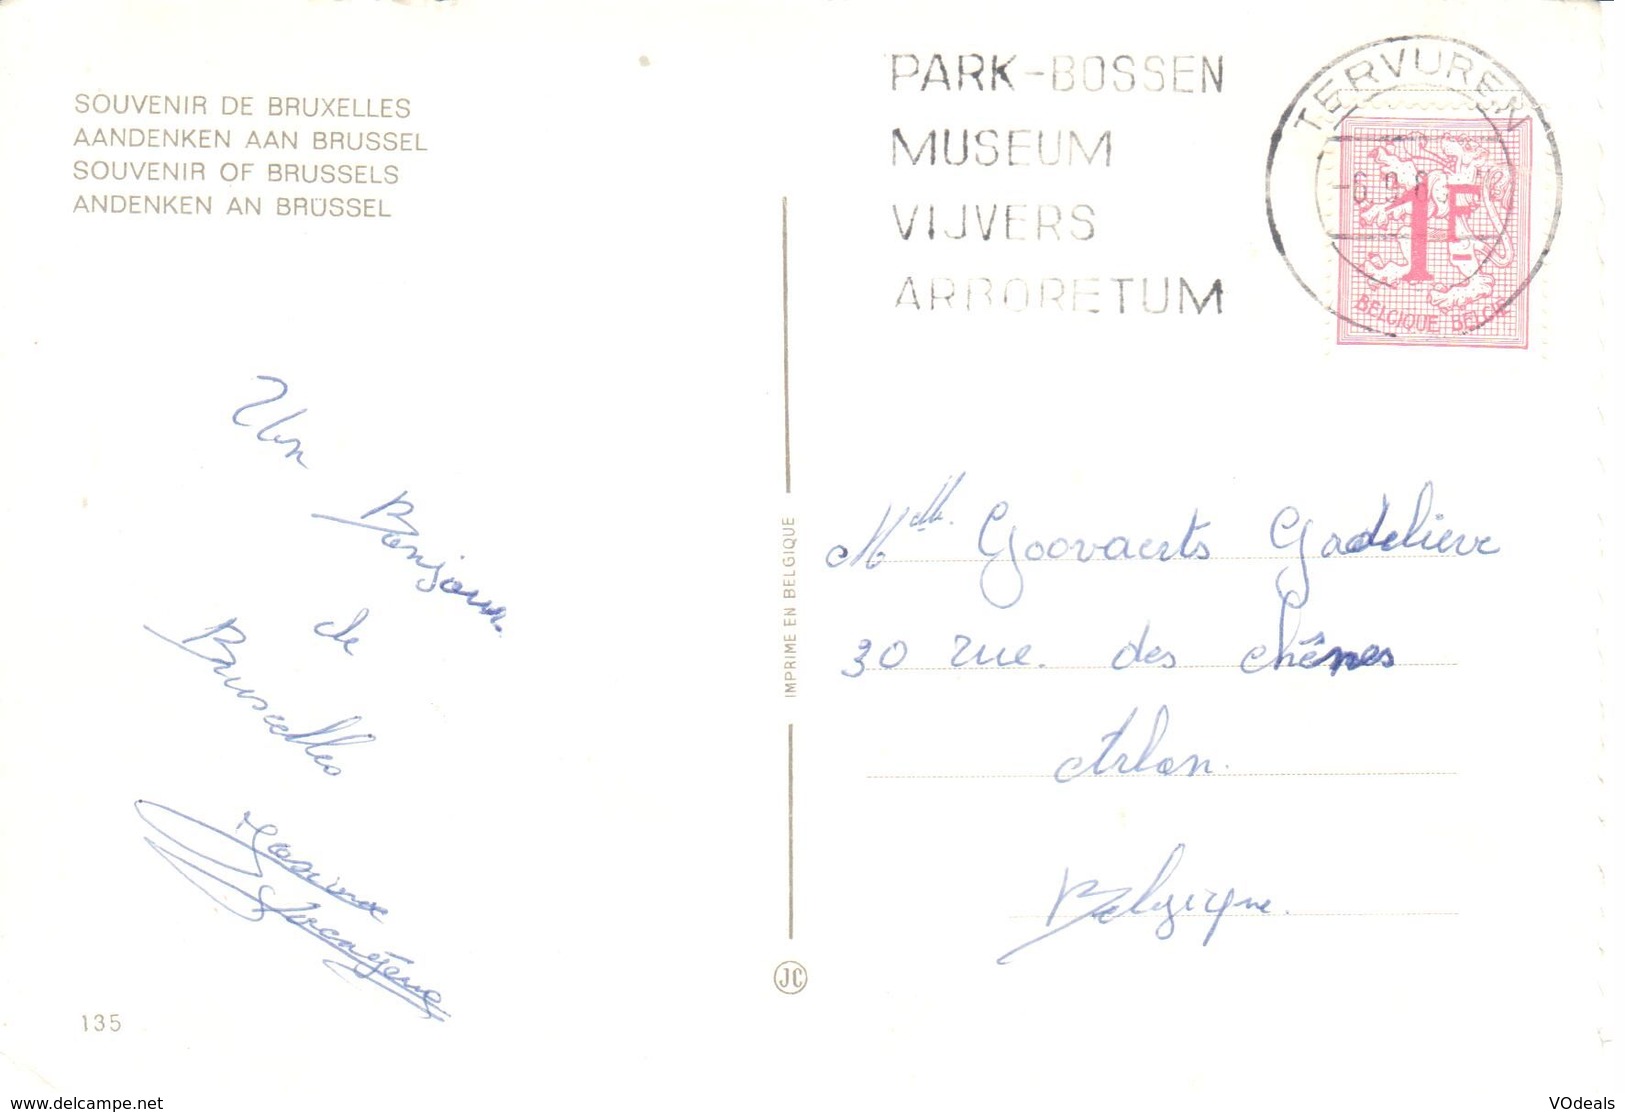 SOUVENIR DE BRUXELLES
AANDENKEN AAN BRUSSEL
SOUVENIR OF BRUSSELS
ANDENKEN AN BRÜSSEL
PARK-BOSSEN
MUSEUM
VIJVERS
ARBORETUM
TERVUREN
1F
BELGIQUE BELGIË
Un
Bonjour
de
Bruxelles
135
IMPRIME EN BELGIQUE
JC
Mlle. Goovaerts Gadelieve
30 rue. des chênes
Arlon.
Belgique.
www.delcampe.net
VOdeals